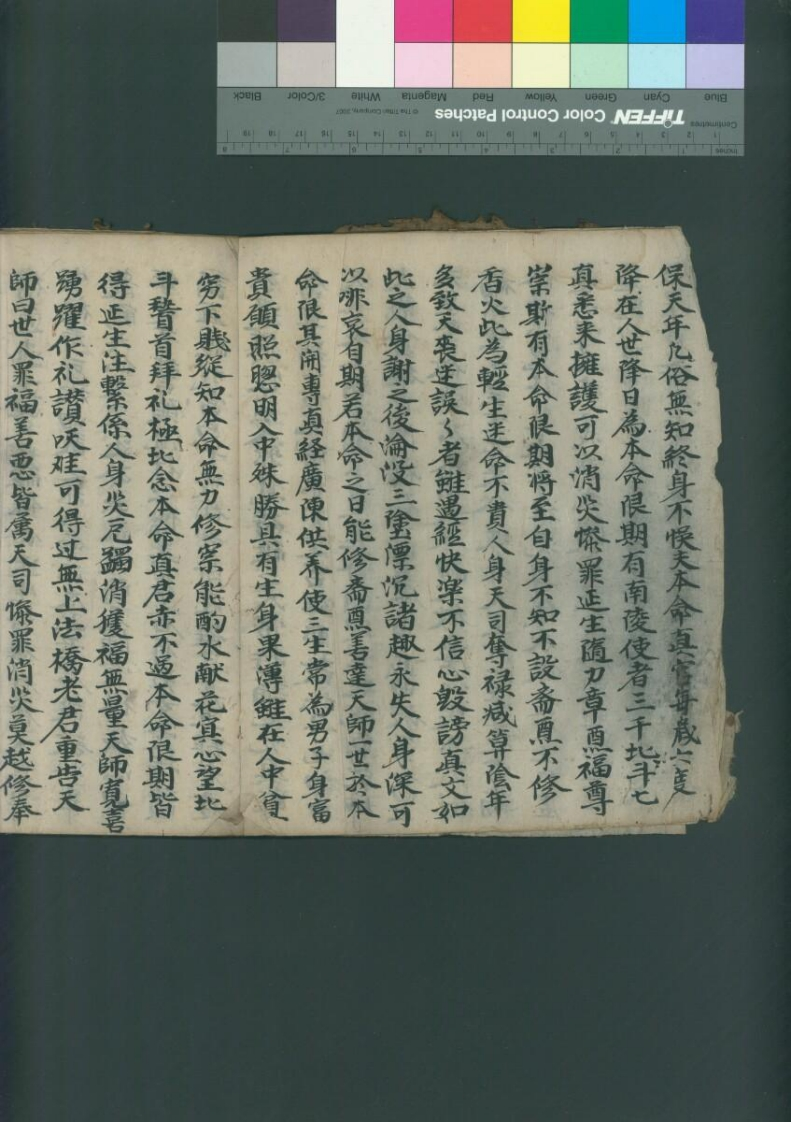 保天年凡俗無知終身不悮夫本命真官每歳六度
降在人世降日為本命限期有南陵使者三千北斗七
真悉来擁護可以消災懺罪延生隨力章醮福尊
崇斯有本命限期將至自身不知不設斎醮不修
香火此為輕生迷命不貴人身天司奪禄减算陰年
多致天喪迷誤〻者雖遇經快楽不信心毀謗真文如
此之人身謝之後淪没三塗漂沉諸趣永失人身深可
以啡哀自期若本命之日能修斎醮善達天師一世於本
命限其開專真経廣陳供养使三生常為男子身富
貴頭照聰明入中殊勝具有生身果薄雖在人中貧
穷下賤縱知本命無力修崇能酌水献花寘心望北
斗稽首拜礼極北念本命真君亦不過本命限期皆
得延生注繋係人身災厄蠲消獲福無量天師寛喜
踴躍作礼讃哎难可得过無上法橋老君重告天
師曰世人罪福善悪皆属天司懺罪消災莫越修奉
Blue
Cyan
Green
Yellow
Red
Magenta
White
3/Color
Black
Centimetres
TIFFEN Color Control Patches
© The Tiffen Company, 2007
Inches